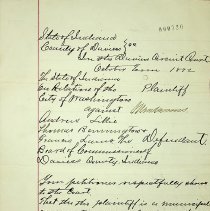 State of Indiana
County of Daviess } SS
In the Daviess Circuit Court
October Term 1892
The State of Indiana
On Relation of the Plaintiff
City of Washington
against
Andrew Lillie
Thomas Berrington
Francis The Defendant
Board of Commissioners
Daviess County, Indiana
Your petitioner respectfully shows
to the Court
That the plaintiff is a municipal